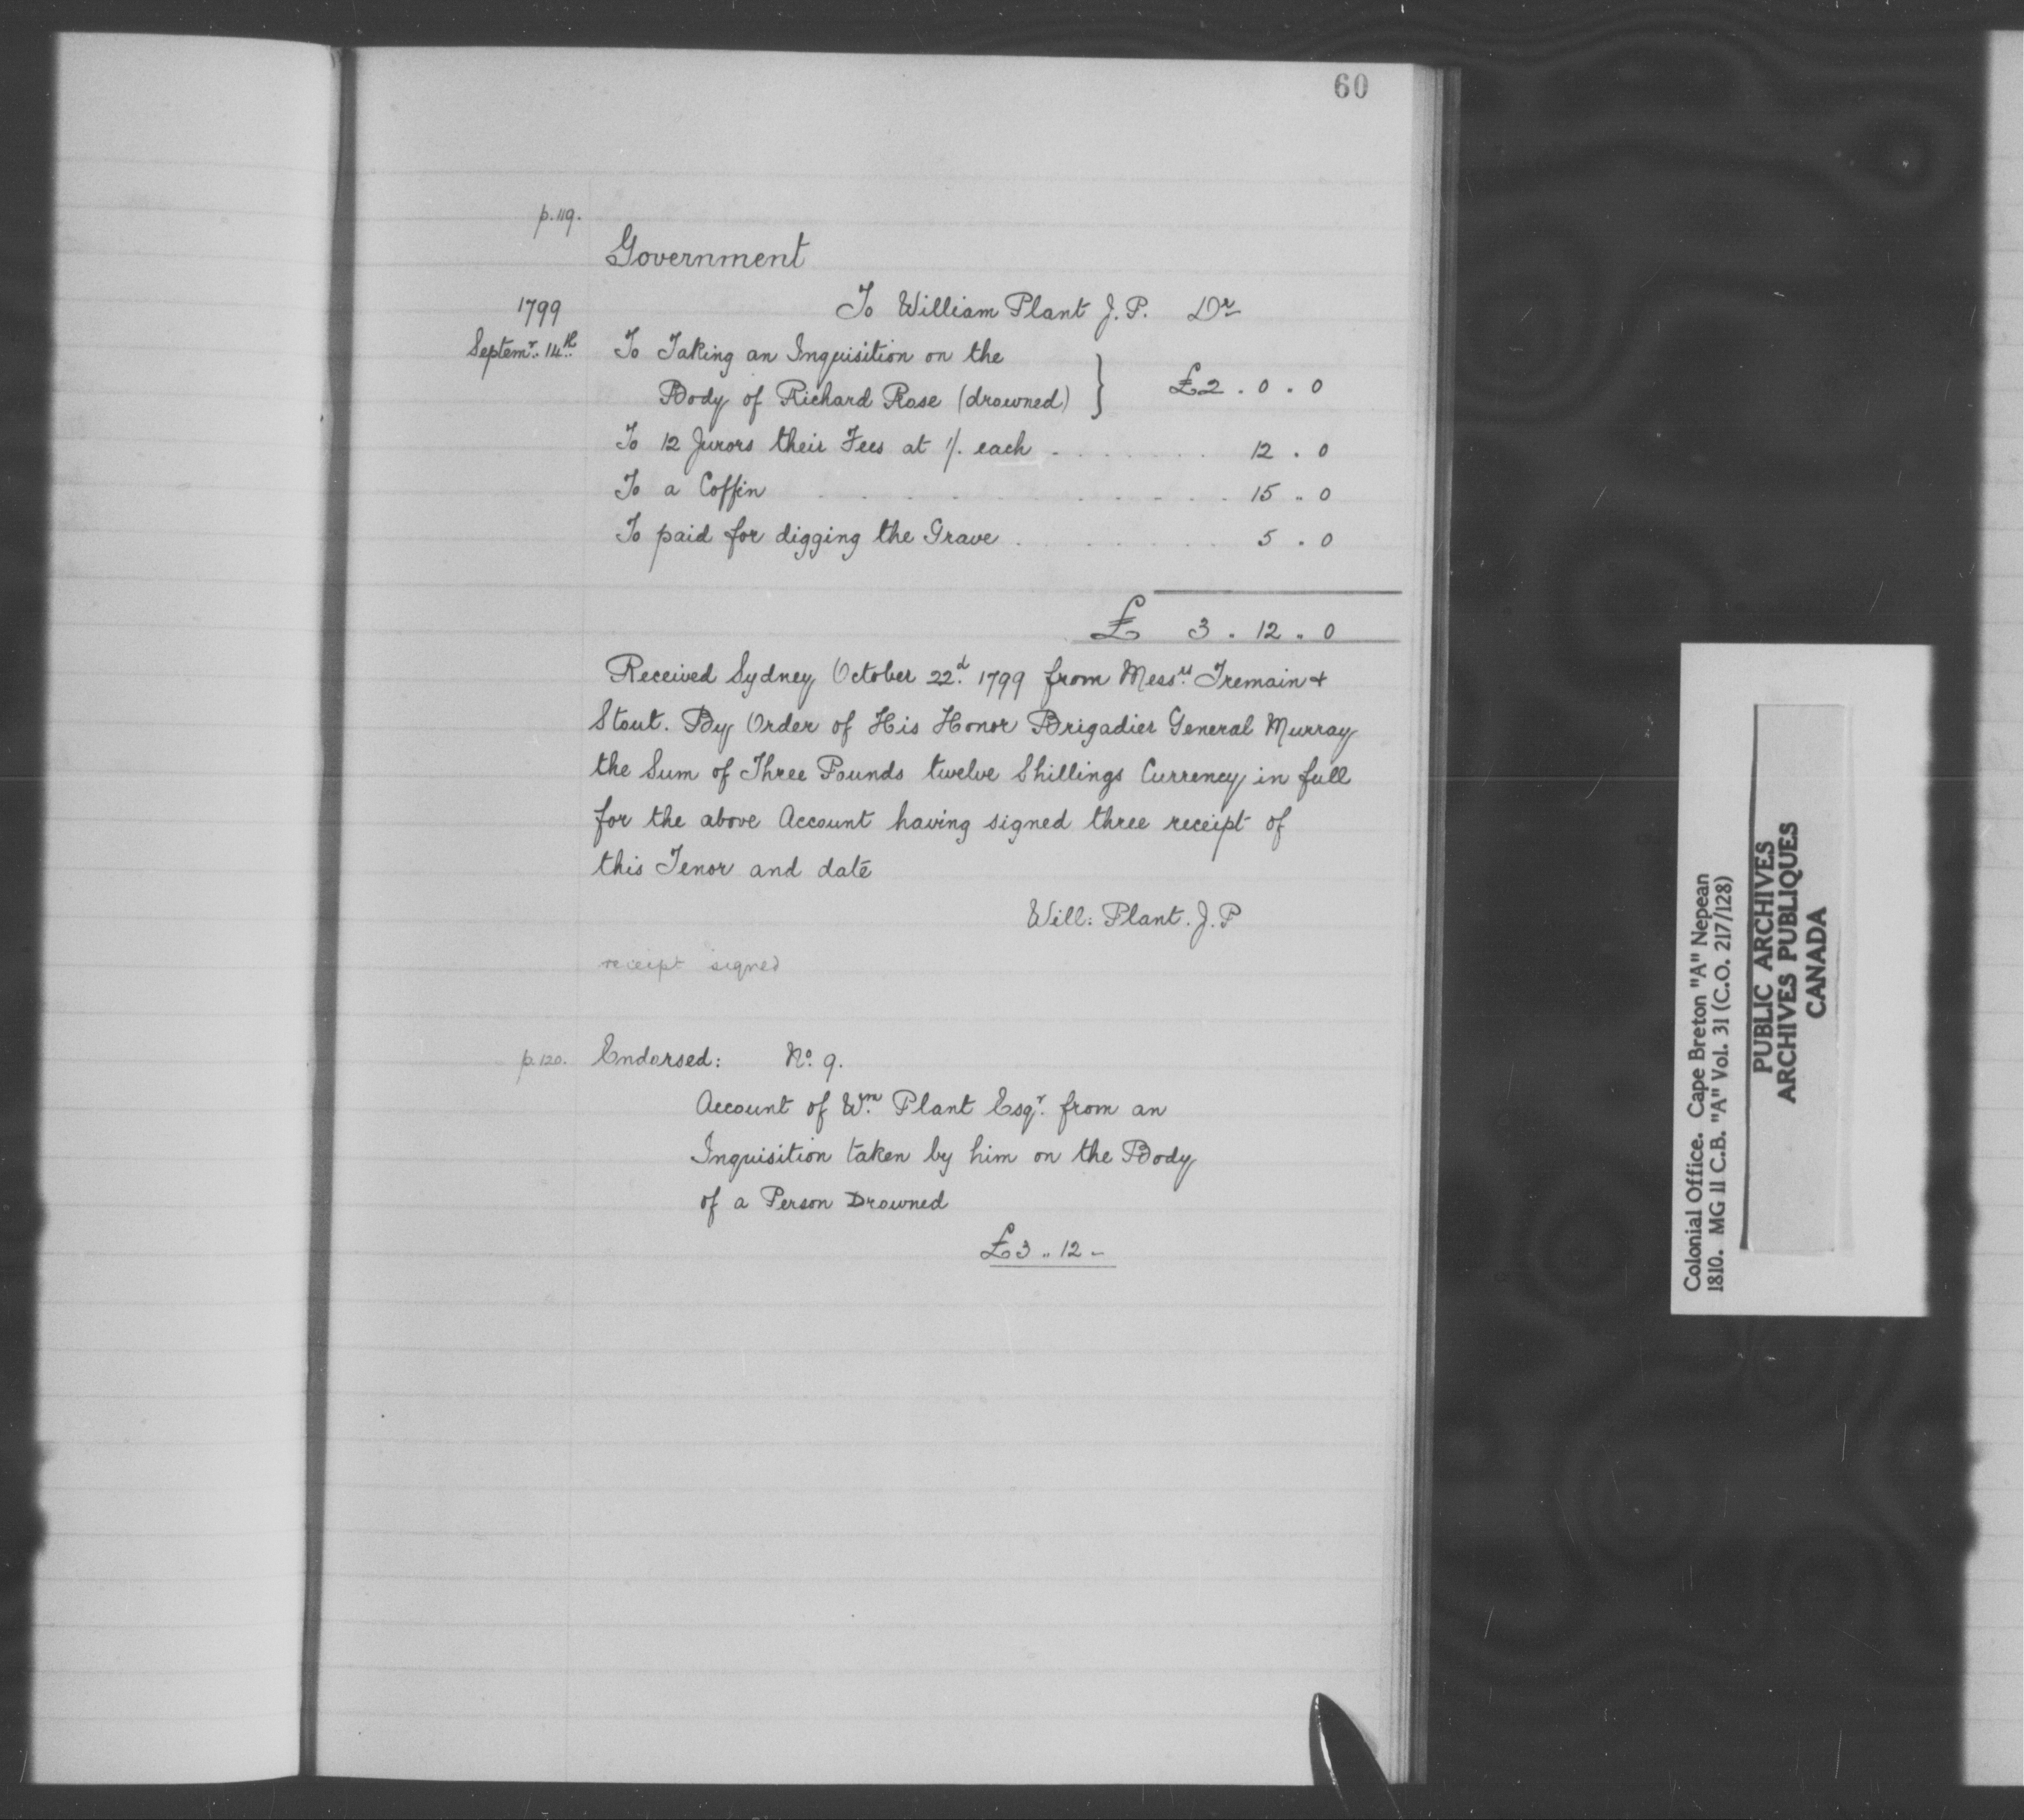 60
p.119.
Government
1799 To William Plant J.P. Dr
Septemr. 14th To Taking an Inquisition on the
Body of Richard Rose (drowned) } £2 . 0 . 0
To 12 Jurors their Fees at 1/. each . . . . . . . 12 . 0
To a Coffin . . . . . . . . . . 15 .. 0
To paid for digging the Grave . . . . . . . 5 . 0
£ 3 .. 12 .. 0
Received Sydney October 22d. 1799 from Messrs. Tremain &
Stout. By Order of His Honor Brigadier General Murray
the Sum of Three Pounds twelve Shillings Currency in full
for the above Account having signed three receipt of
this Tenor and date
Will: Plant. J.P
receipt signed
p.120. Endorsed: No. 9.
Account of Wm. Plant Esqr. from an
Inquisition taken by him on the Body
of a Person Drowned
£3 .. 12 -
Colonial Office. Cape Breton "A" Nepean
1810. MG 11 C.B. "A" Vol. 31 (C.O. 217/128)
PUBLIC ARCHIVES
ARCHIVES PUBLIQUES
CANADA